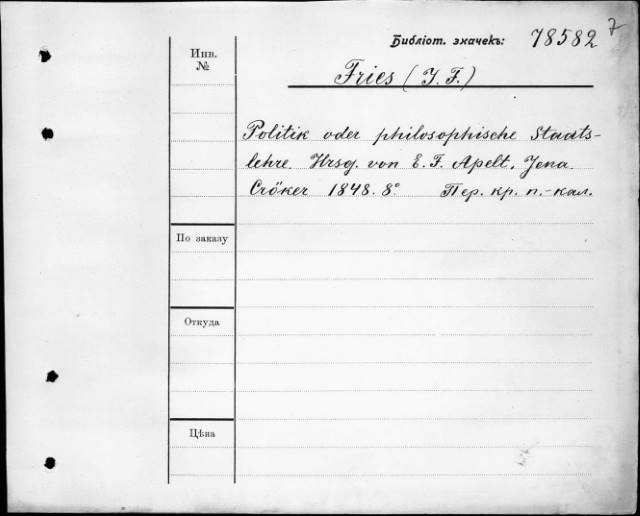 7
Библіот. значекъ: 78582
Инв.
№
Fries (J. F.)
Politik oder philosophische Staats-
lehre. Hrsg. von E. F. Apelt. Jena
Cröker 1848. 8° Пер. кр. п.-кал.
По заказу
Откуда
Цѣна